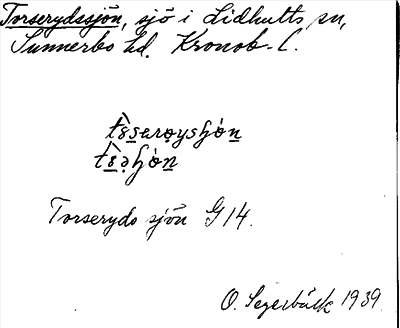 Torserydssjön, sjö i Lidhults sn,
Sunnerbo hd. Kronob. l.
Torseryds sjön G 14.
O. Segerbäck 1939